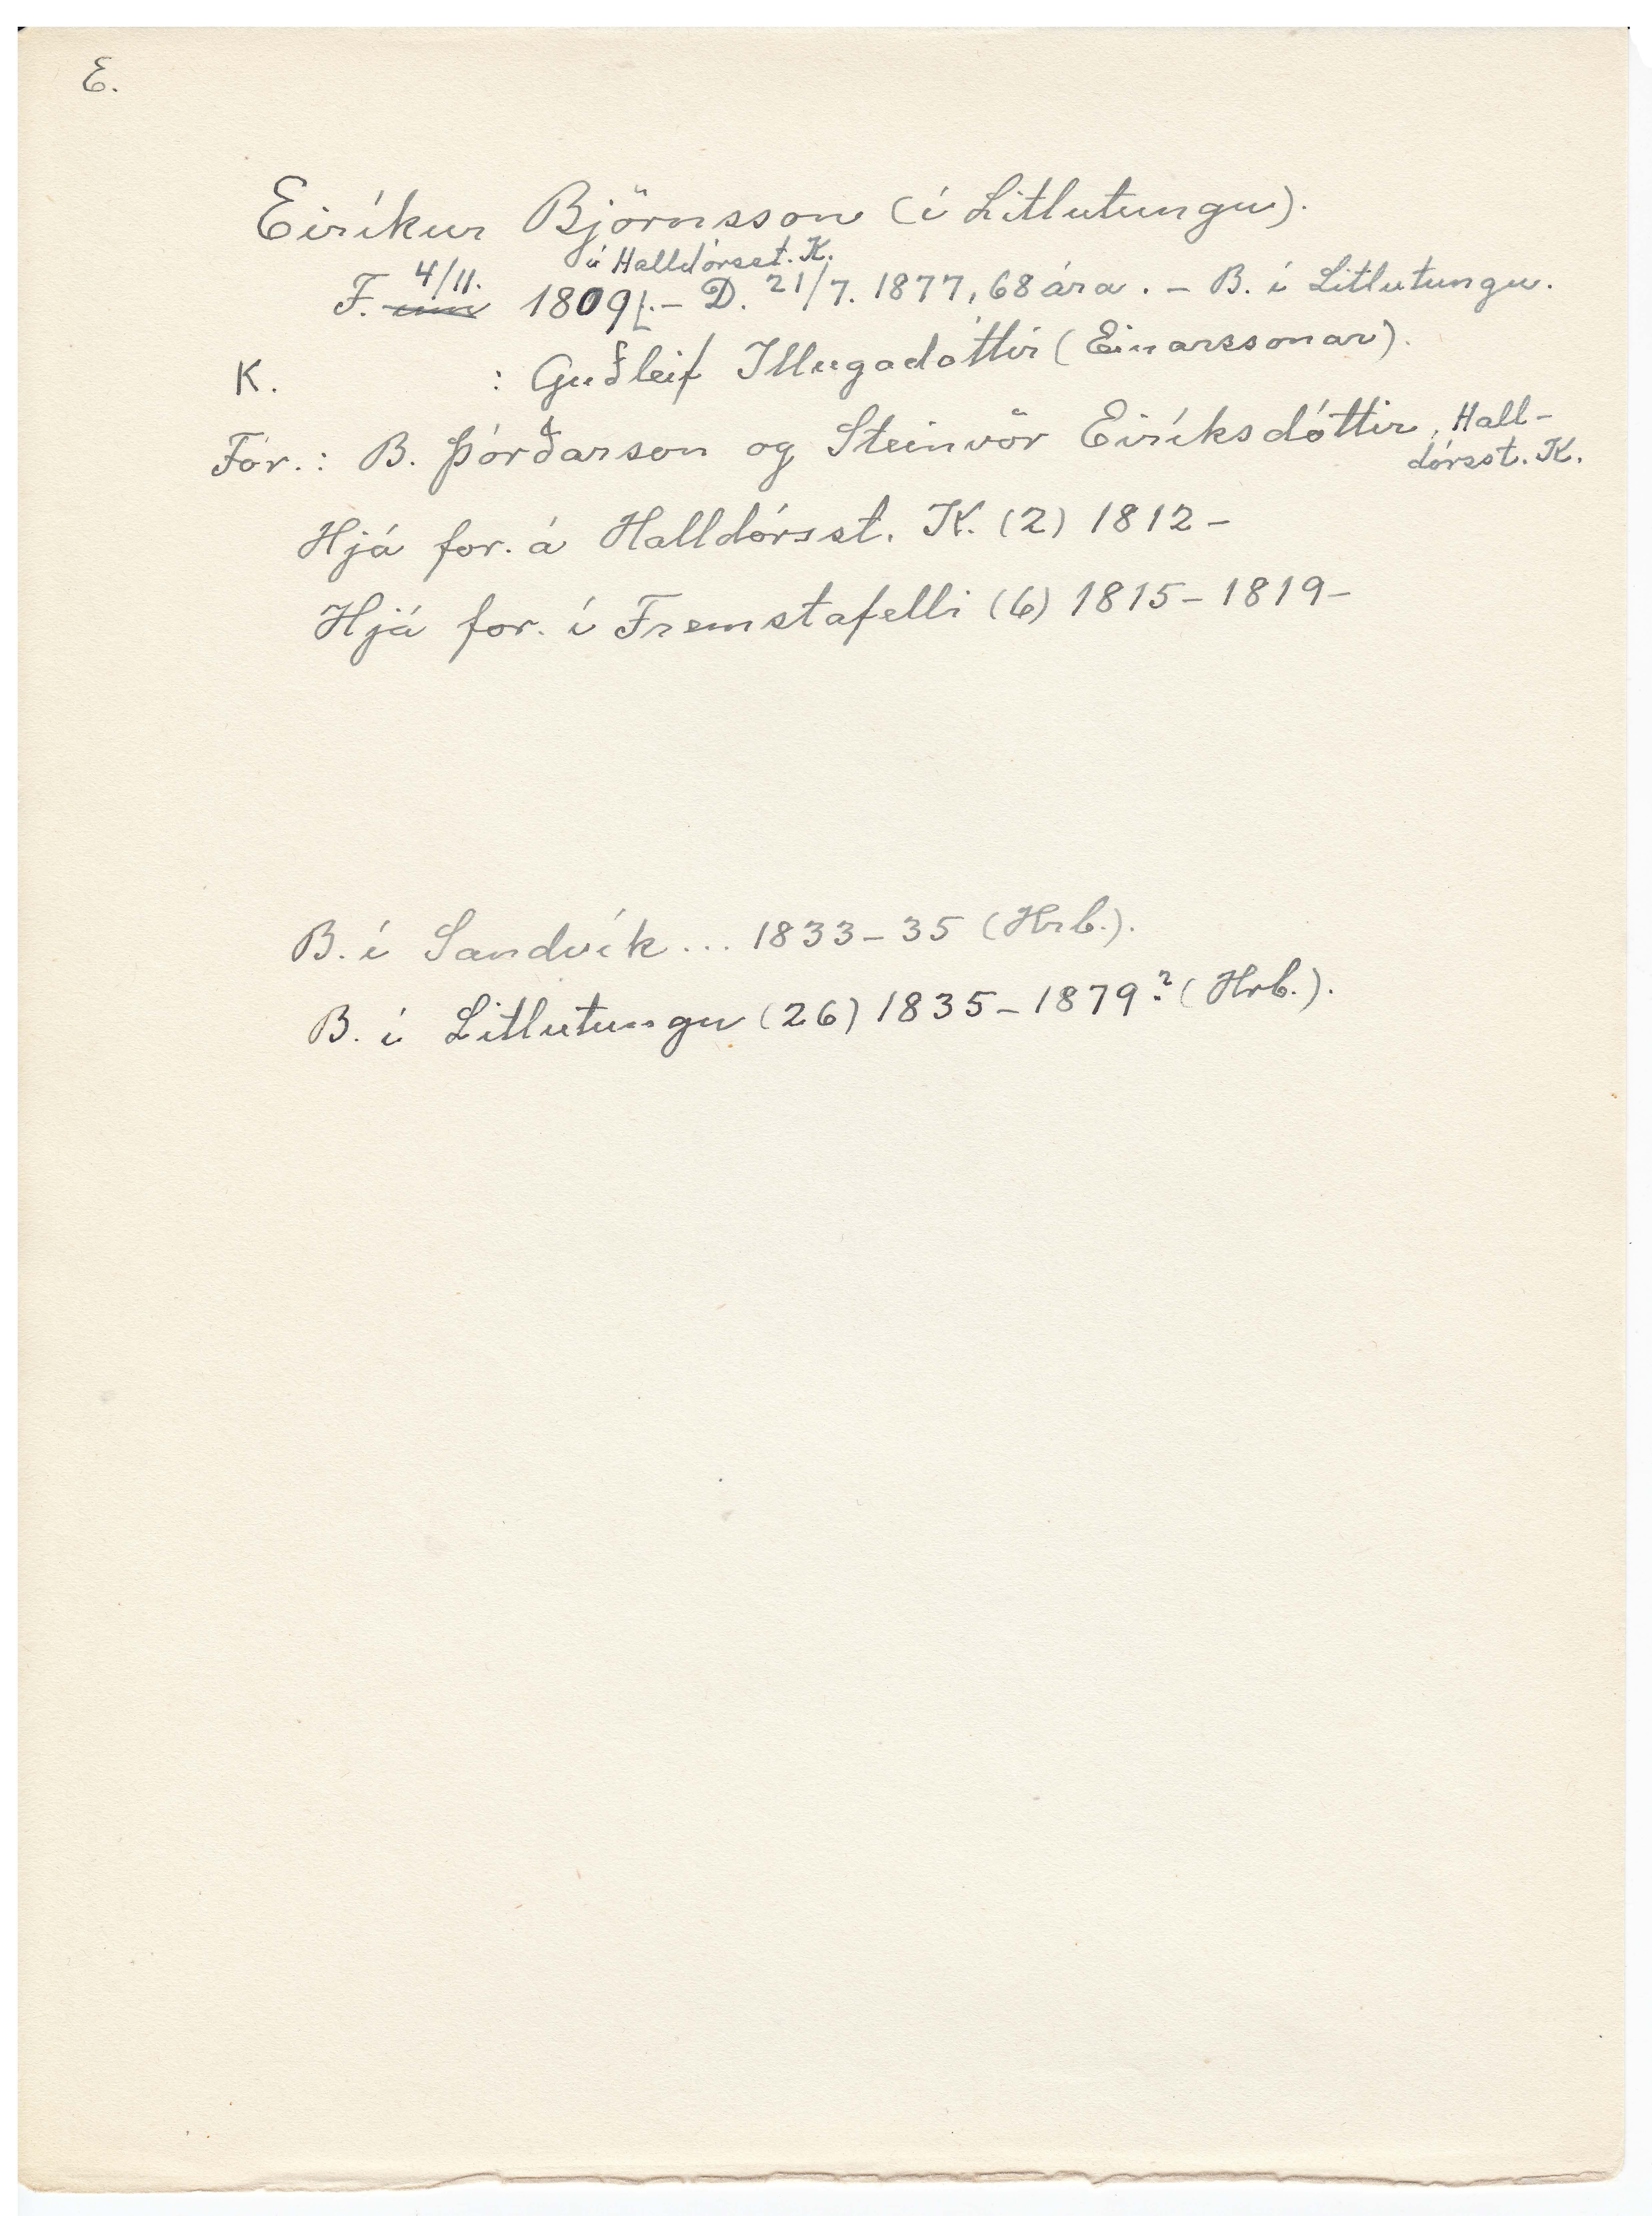 E.
Eiríkur Björnsson (í Litlutungu).
á Halldórsst. K.
F. 4/11. 1809. – D. 21/7. 1877, 68 ára. – B. í Litlutungu.
K. : Guðleif Illugadóttir (Einarssonar).
For.: B. Þórðarson og Steinvör Eiríksdóttir, Hall-
dórsst. K.
Hjá for. á Halldórsst. K. (2) 1812 –
Hjá for. í Fremstafelli (6) 1815 – 1819 –
B. í Sandvík ... 1833 – 35 (Hrb.).
B. í Litlutungu (26) 1835 – 1879? (Hrb.).